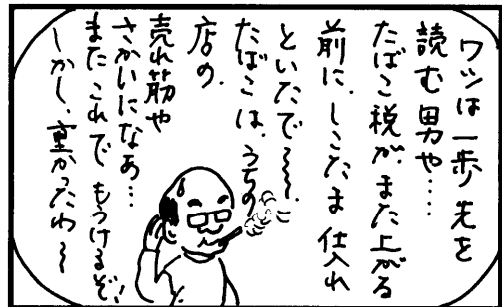 ワシは一歩先を
読む男や……
たばこ税が、また上がる
前に、しこたま仕入れ
といたで～～、
たばこは、うちの
店の、
売れ筋や
さかいになあ…
またこれでもうけるぞ!
しかし、重かったわ～